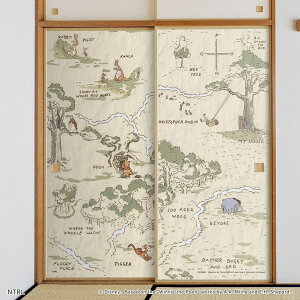 RABBIT
KANGA
SANDY PIT
WHERE ROO PLAYS
BEE
TREE
CHRISTOPHER ROBIN
MY HOUSE
POOH
100 AKER
WOOD
EEYORE
WHERE THE
WOOZLE WASN'T
RATHER BOGGY
AND SAD
FLOODY
PLACE
TIGGER
NITRI
© Disney. Based on the "Winnie the Pooh" works by A.A. Milne and E.H. Shepard.